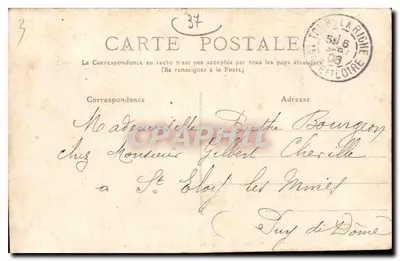 3
37
CARTE POSTALE
La Correspondance au recto n'est pas acceptée par tous les pays étrangers
(Se renseigner à la Poste)
Correspondance
Adresse
Mademoiselle Berthe Bourgeon
chez Monsieur Gilbert Cherille
a St Eloy les Mines
Puy de Dôme